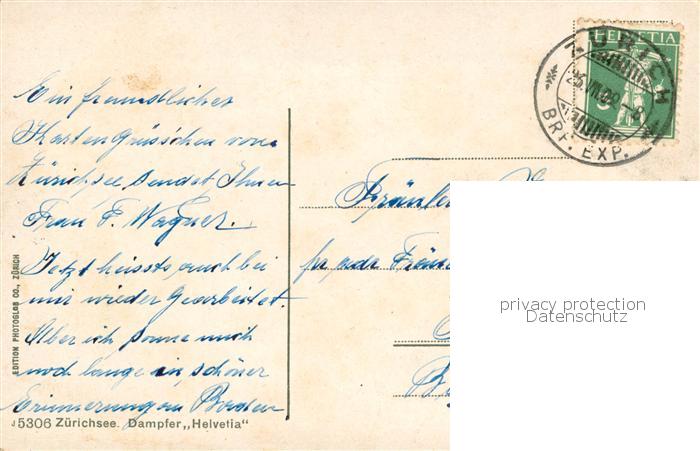 Ein freundliches
Kartengrüsschen vom
Zürichsee sendet Ihnen
Frau F. Wagner.
Jetzt heissts auch bei
mir wieder gearbeitet.
Aber ich sonne mich
noch lange in schöner
Erinnerung an Baden
EDITION PHOTOGLOB CO., ZÜRICH
J5306 Zürichsee. Dampfer „Helvetia"
HELVETIA
5
ZÜRICH
BRF. EXP.
Fräulein
privacy protection
Datenschutz